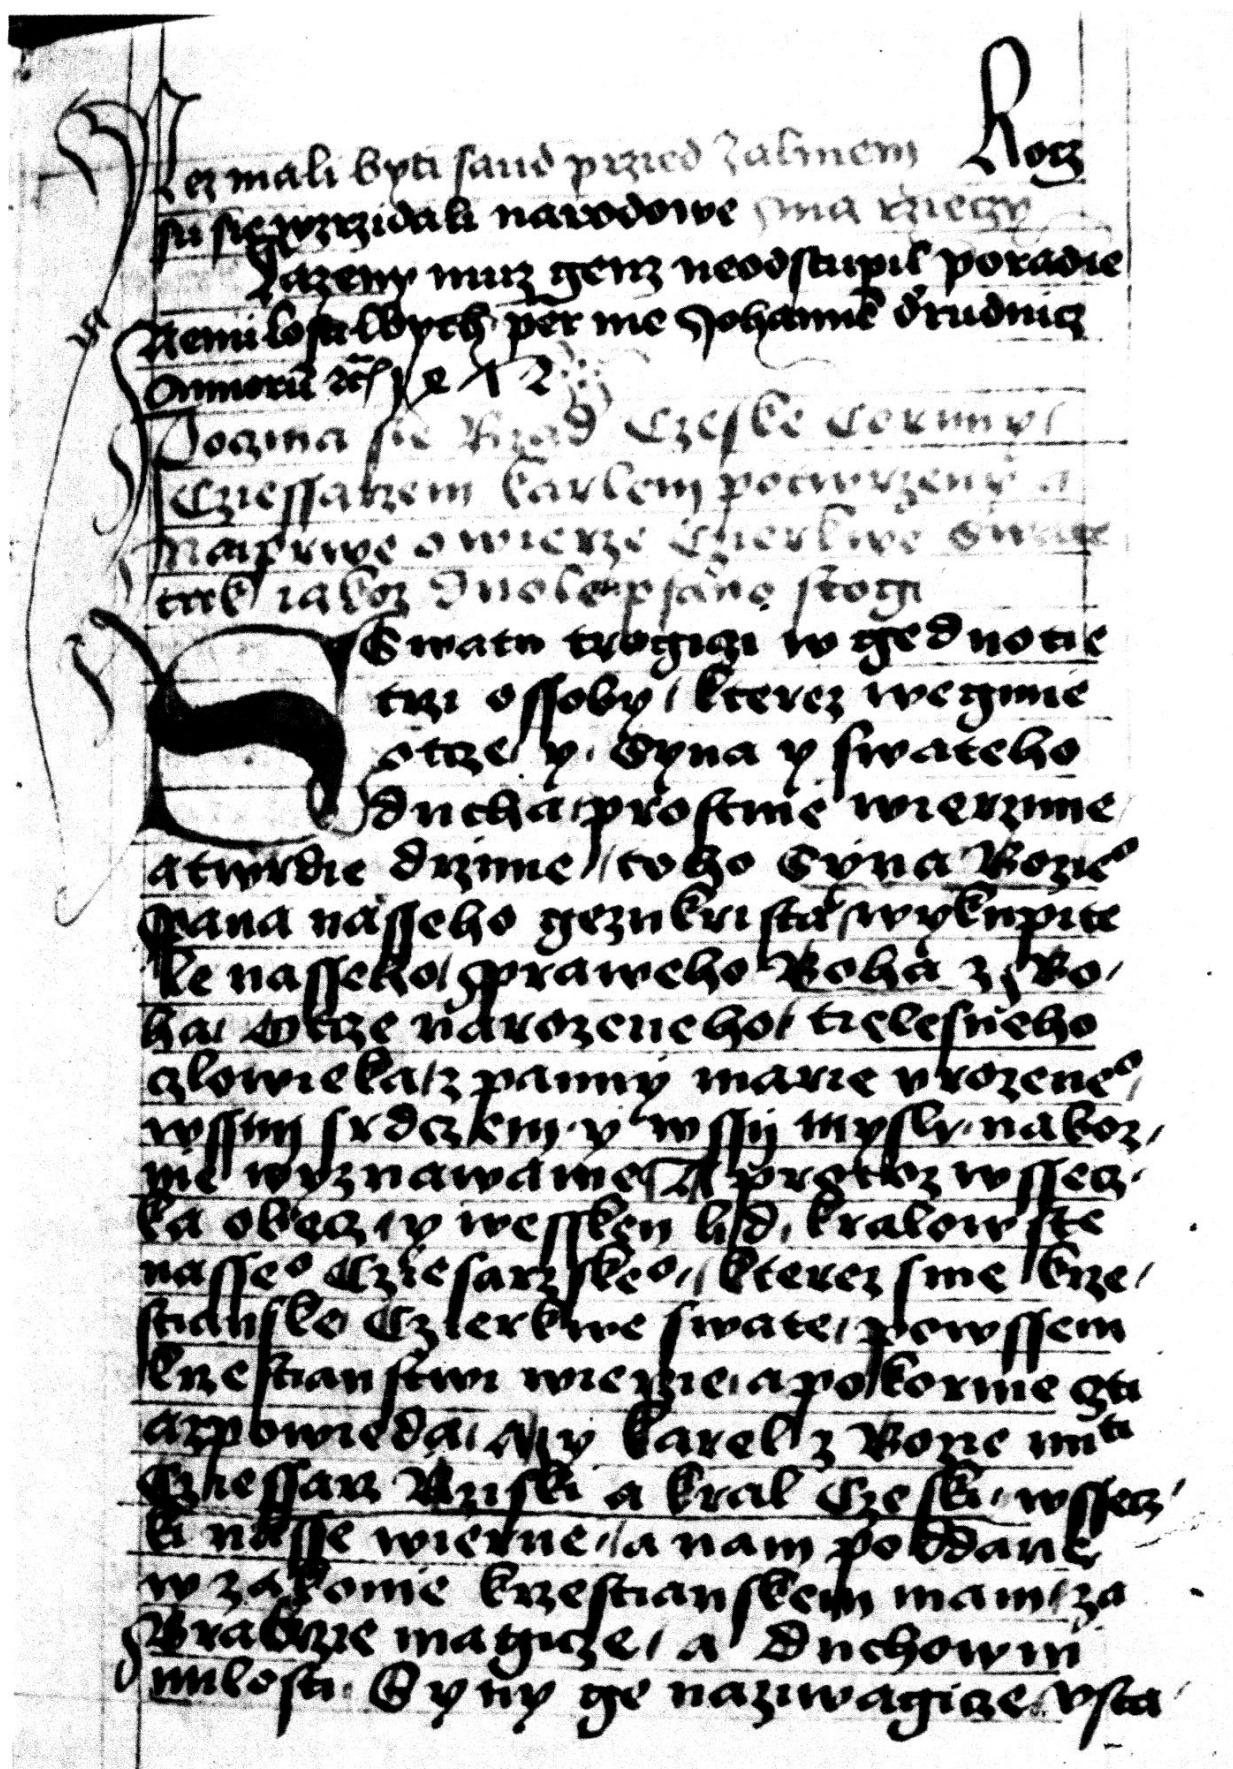 Nez mali byti saud przied zalmem Rocz
su sie wzrzidali narodowe
Lazeny muz genz neodstupil poradie
Nemilostiwych per me Johannem
Poczina sie Rzad Czeske Coruny
Cziessarzem karlem potwrzeny a
Naiprwe o wierze Czierkwe Swate
iakoz duole psano stogi
Swatu trogiczi w gednotie
trzi ossoby / kterez wegmie
otcze / y Syna y swateho
ducha prostnie wierzime
a twrdie drzime / toho Syna Bozieo
pana nasseho gezu krista wykupite
le nasseho / praweho Boha z Bo /
ha Otcze narozeneho / tielesneho
czlowieka / z panny marie vrozeneo /
wssim srdczem y wssij mysly naboz /
nie wyznawame A protoz wssecz
ka obecz / y wessken lid kralowste
nasseo Cziesarzskeo / kterez sme krze /
stianske Czierkwe swate / powssem
krzestianstwi wierzie a pokornie czti
a zpowieda / My karel z Bozie mti
Cziessarz Rziski a kral Czeski wssecz /
ki nasse wierne / a nam poddane
w zakonie krzestianskem mam / za
Bratrzie magicze / a Duchowni
milosti Syny ge naziwagicze vsta /